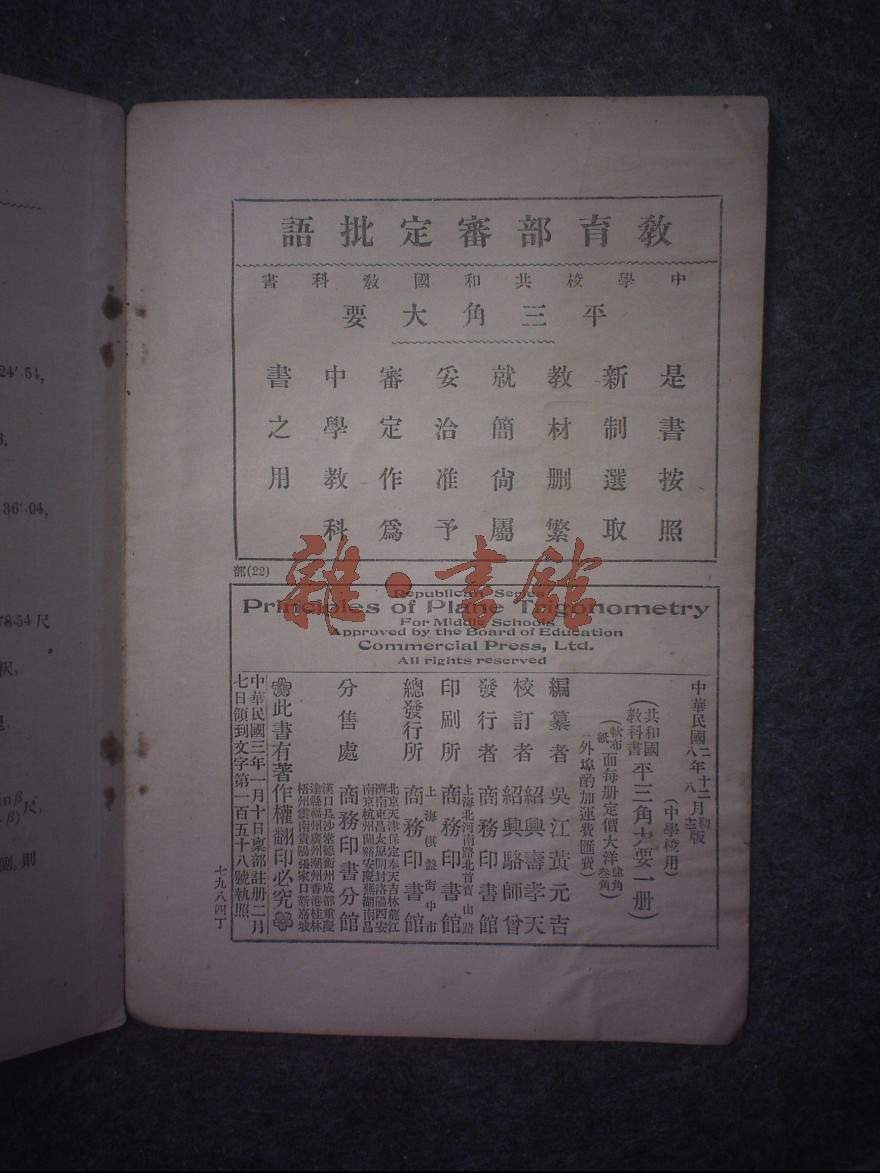 教育部審定批語
中學校共和國教科書
平三角大要
是書按照
新制選取
教材删繁
就簡尙屬
妥洽准予
審定作爲
中學教科
書之用
部(22)
Republican Series
Principles of Plane Trigonometry
For Middle Schools
Approved by the Board of Education
Commercial Press, Ltd.
All rights reserved
中華民國二年十二月初版
(中學校用)
(共和國教科書平三角大要一册)
(軟布紙面每册定價大洋肆角叁角)
(外埠酌加運費匯費)
編纂者 吳江黃元吉
校訂者 紹興壽孝天 紹興駱師曾
發行者 商務印書館
印刷所 上海北河南路北首寶山路 商務印書館
總發行所 上海棋盤街中市 商務印書館
分售處 商務印書分館
北京天津保定奉天吉林龍江
濟南東昌太原開封洛陽西安
南京杭州蘭谿安慶蕪湖南昌
漢口長沙常德衡州成都重慶
達縣福州廣州潮州香港桂林
梧州雲南貴陽張家口新嘉坡
此書有著作權翻印必究
中華民國三年一月十日稟部註册二月
七日領到文字第一百五十八號執照
七九八四丁
雜·書館
24′.54,
36′.04,
78.54尺
則